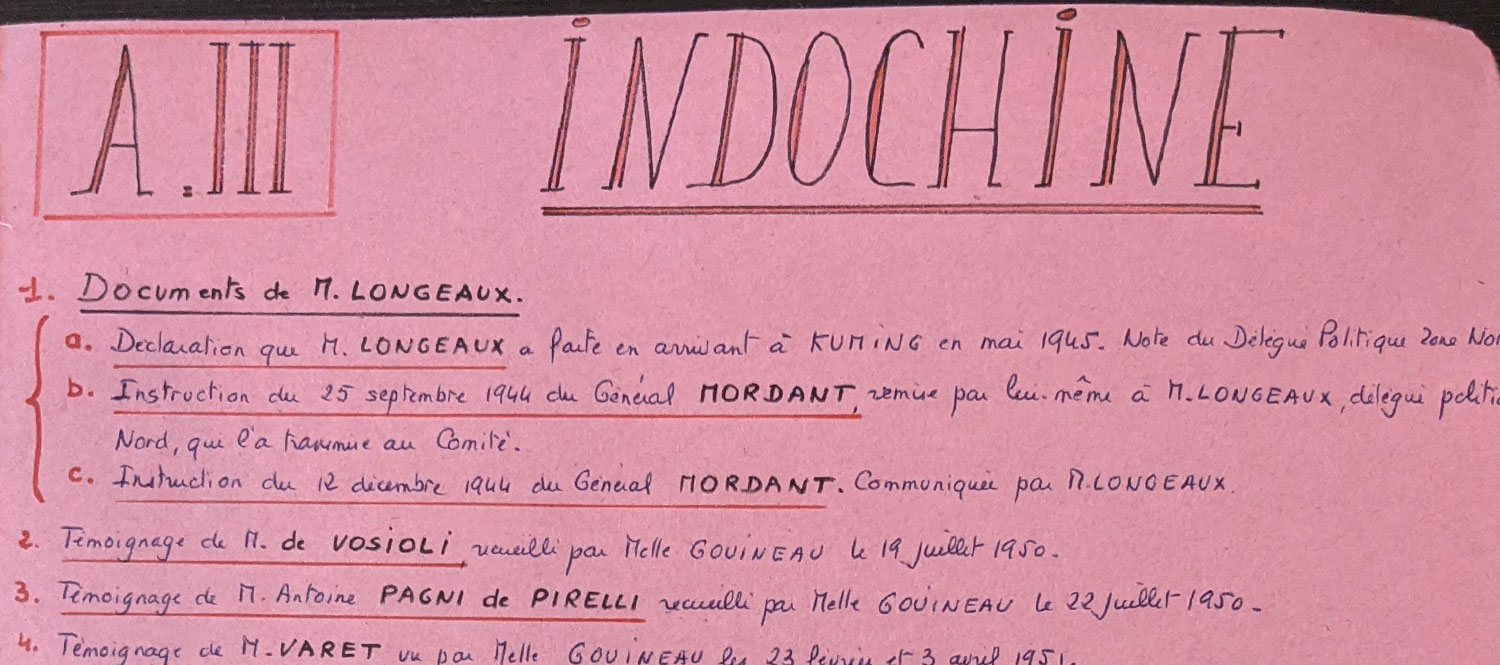 A.III INDOCHINE
1. Documents de M. LONGEAUX.
a. Déclaration que M. LONGEAUX a faite en arrivant à KUMING en mai 1945. Note du Délégué Politique Zone Nor
b. Instruction du 25 septembre 1944 du Général MORDANT, remise par lui-même à M. LONGEAUX, délégué politi
Nord, qui l'a transmise au Comité.
c. Instruction du 12 décembre 1944 du Général MORDANT. Communiquée par M. LONGEAUX.
2. Témoignage de M. de VOSIOLI, recueilli par Melle GOUINEAU le 19 juillet 1950.
3. Témoignage de M. Antoine PAGNI de PIRELLI recueilli par Melle GOUINEAU le 22 juillet 1950.
4. Témoignage de M. VARET vu par Melle GOUINEAU les 23 février et 3 avril 1951.